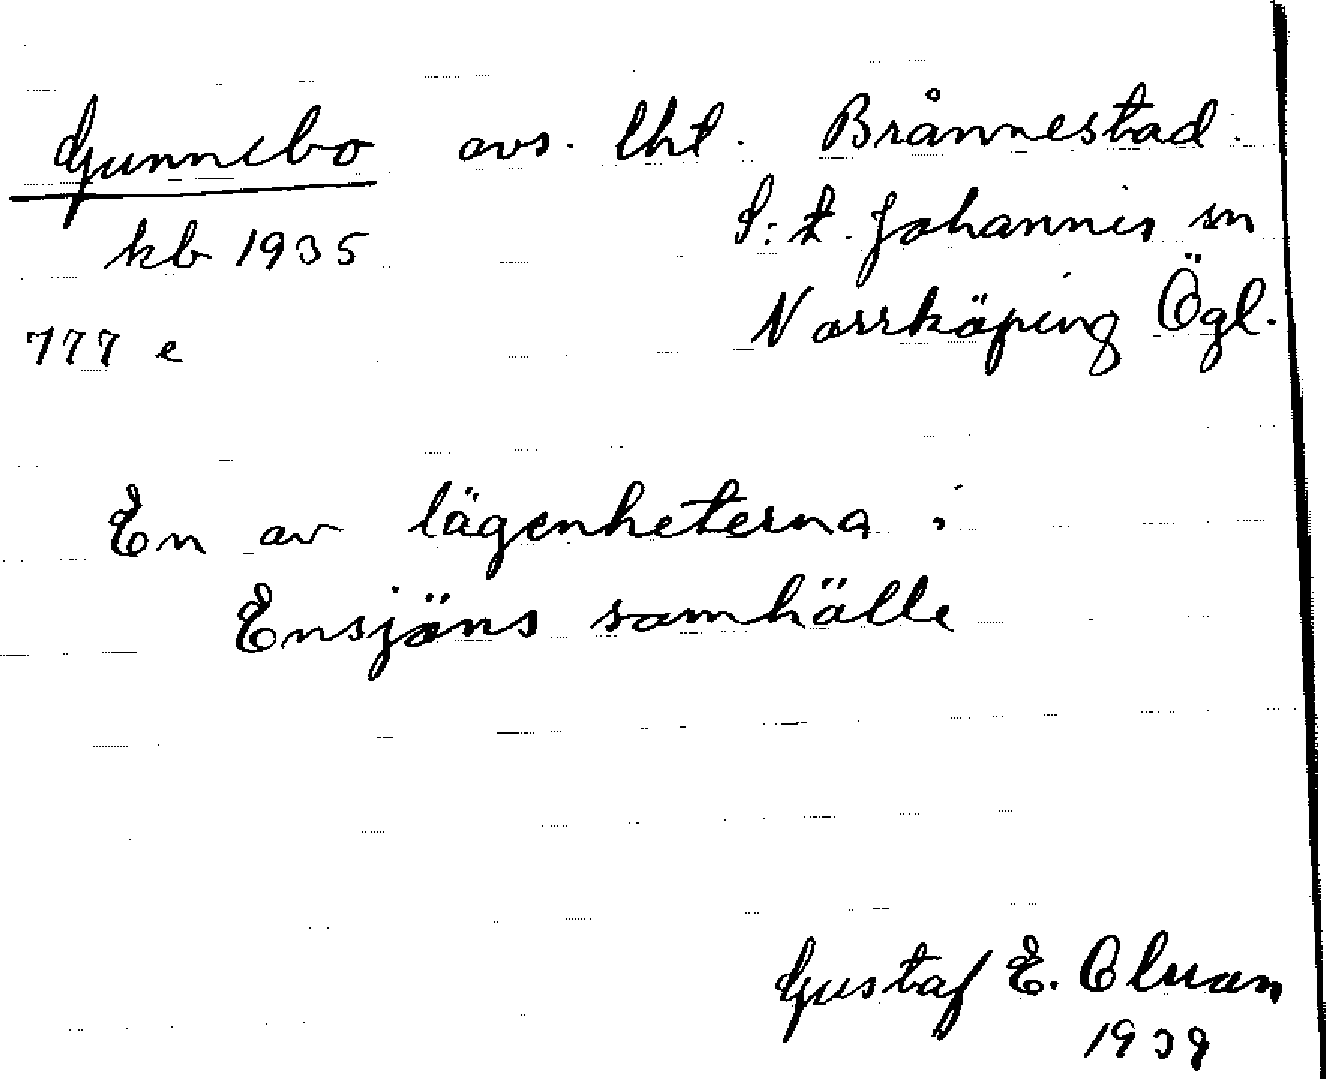 Gunnebo avs. lht. Brånnestad
S:t Johannis sn
kb 1935
Norrköping Ögl.
777 e
En av lägenheterna i
Ensjöns samhälle
Gustaf E.
1939